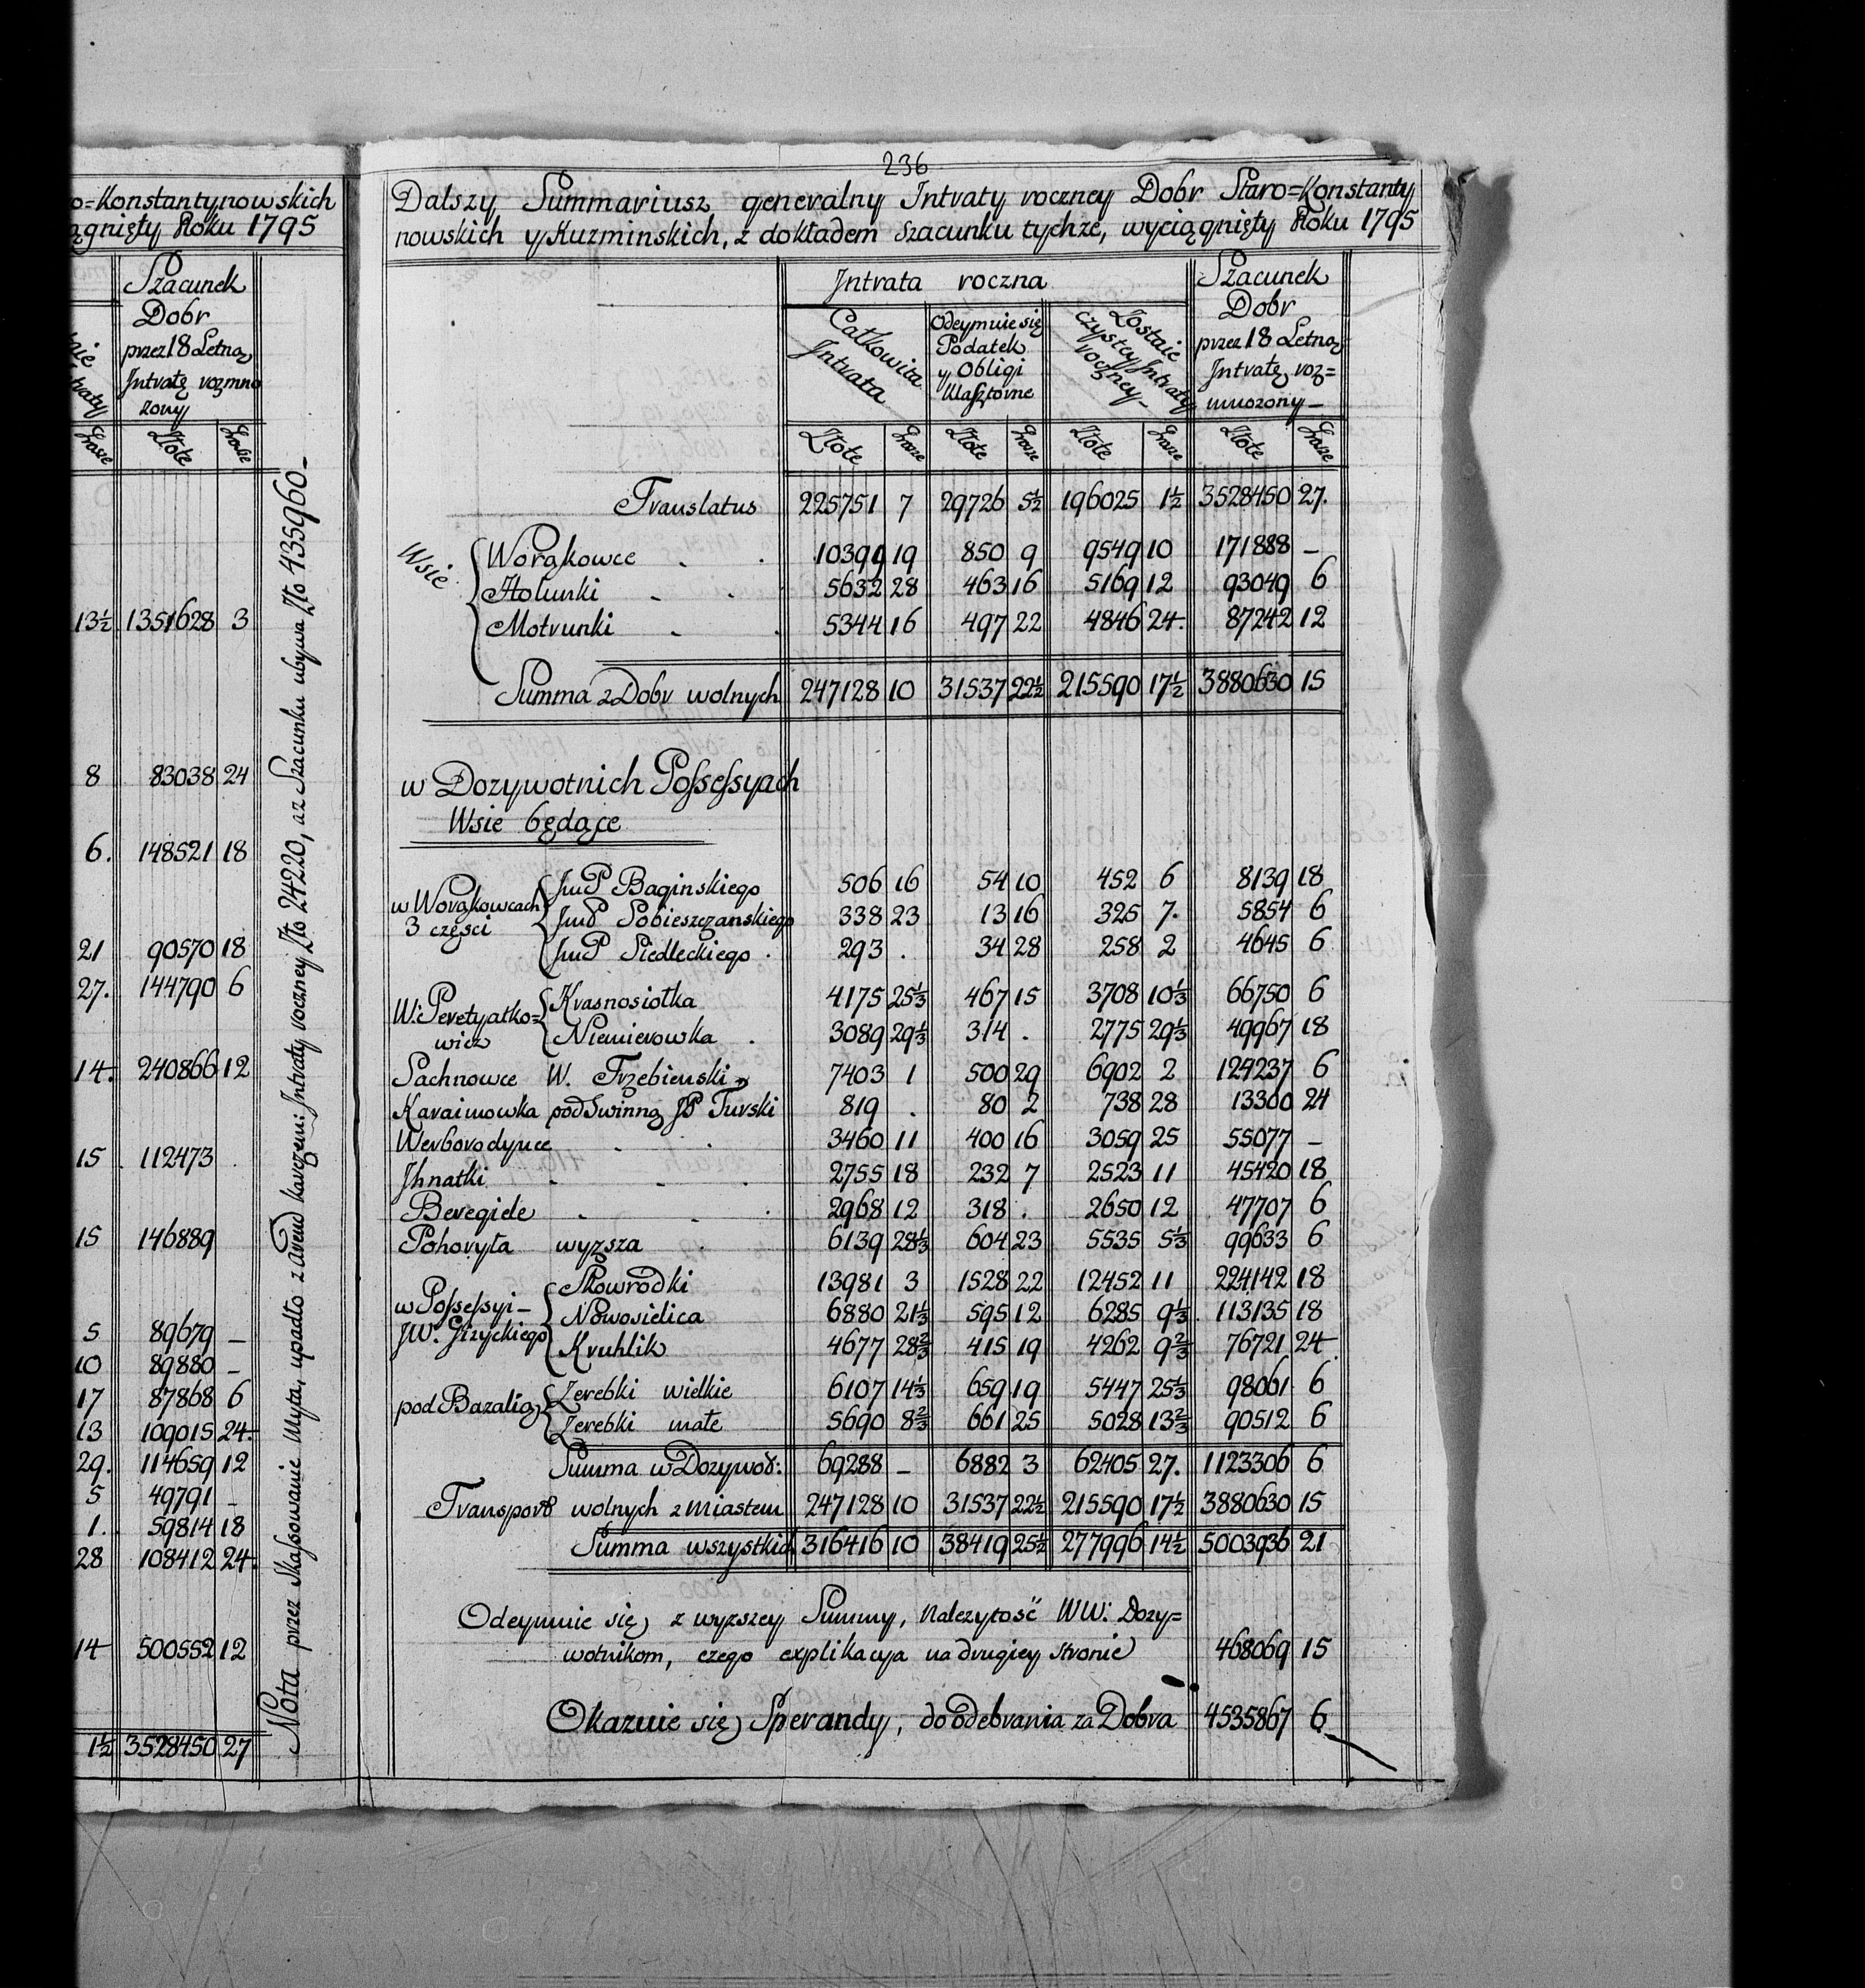 o=Konstantynowskich
ągnięty Roku 1795
Szacunek
Dobr
przez 18 Letną
Intratę rozmno
żony
Grosze Złote Grosze
13½ 1351628 3
8 83038 24
6. 148521 18
21 90570 18
27. 144790 6
14. 240866 12
15 112473
15 146889
5 89679 –
10 89880 –
17 87868 6
13 109015 24.
29. 114659 12
5 49791 –
1. 59814 18
28 108412 24.
14 500552 12
1½ 3528450 27
Nota przez Skassowanie Myta, upadło z Arend karczem: Intraty roczney Zło 24220, az Szacunku ubywa Zło 435960 –
236
Dalszy Summariusz generalny Intraty roczney Dobr Staro=Konstanty
nowskich y Kuzminskich, z dokładem szacunku tychże, wyciągnięty Roku 1795
Intrata roczna
Całkowita
Intrata
Odeymuie się
Podatek
y Obligi
Klasztorne
Zostaie
czystey Intraty
roczney –
Szacunek
Dobr
przez 18 Letną
Intratę roz=
mnożony –
Złote Grosze Złote Grosze Złote Grosze Złote Grosze
Translatus 225751 7 29726 5½ 196025 1½ 3528450 27.
Wsie
Worąkowce 10399 19 850 9 9549 10 171888 –
Hołunki 5632 28 463 16 5169 12 93049 6
Motrunki 5344 16 497 22 4846 24. 87242 12
Summa z Dobr wolnych 247128 10 31537 22½ 215590 17½ 3880630 15
w Dozywotnich Possessyach
Wsie będące
w Worąkowcach
3 częsci
JmP Baginskiego 506 16 54 10 452 6 8139 18
JmP Sobieszczanskiego 338 23 13 16 325 7. 5854 6
JmP Siedleckiego . 293 . 34 28 258 2 4645 6
W: Peretyatko=
wicz
Krasnosiołka 4175 25⅓ 467 15 3708 10⅓ 66750 6
Niemierowka . 3089 29⅓ 314 . 2775 29⅓ 49967 18
Sachnowce W. Trzebienski 7403 1 500 29 6902 2 124237 6
Karaimowka pod Swinną JP Turski 819 . 80 2 738 28 13300 24
Werborodynce 3460 11 400 16 3059 25 55077 –
Jhnatki 2755 18 232 7 2523 11 45420 18
Beregide 2968 12 318 . 2650 12 47707 6
Pohoryła wyzsza 6139 28⅓ 604 23 5535 5⅓ 99633 6
w Possessyi –
JW. Gizyckiego
Skowrodki 13981 3 1528 22 12452 11 224142 18
Nowosielica 6880 21⅓ 595 12 6285 9⅓ 113135 18
Kruhlik 4677 28⅔ 415 19 4262 9⅔ 76721 24
pod Bazalią
Zerebki wielkie 6107 14⅓ 659 19 5447 25⅓ 98061 6
Zerebki małe 5690 8⅔ 661 25 5028 13⅔ 90512 6
Summa w Dozywoś: 69288 – 6882 3 62405 27. 1123306 6
Transport wolnych z miastem 247128 10 31537 22½ 215590 17½ 3880630 15
Summa wszystkich 316416 10 38419 25½ 277996 14½ 5003936 21
Odeymuie się z wyzszey Summy, nalezytość WW: Dozy=
wotnikom, czego explikacya na drugiey stronie 468069 15
Okazuie się Sperandy, do odebrania za Dobra 4535867 6